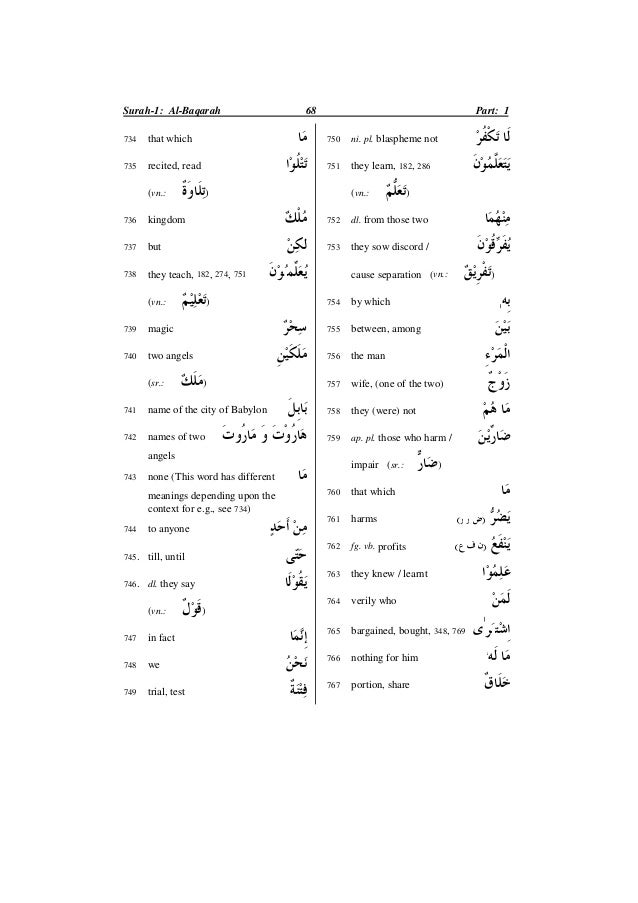 Surah-1: Al-Baqarah 68 Part: 1
734 that which مَا
735 recited, read تَتْلُوْا
(vn.: تِلَاوَةٌ)
736 kingdom مُلْكٌ
737 but لٰكِنْ
738 they teach, 182, 274, 751 يُعَلِّمُوْنَ
(vn.: تَعْلِيْمٌ)
739 magic سِحْرٌ
740 two angels مَلَكَيْنِ
(sr.: مَلَكٌ)
741 name of the city of Babylon بَابِلَ
742 names of two هَارُوْتَ وَ مَارُوتَ
angels
743 none (This word has different مَا
meanings depending upon the
context for e.g., see 734)
744 to anyone مِنْ أَحَدٍ
745. till, until حَتَّى
746. dl. they say يَقُوْلَا
(vn.: قَوْلٌ)
747 in fact إِنَّمَا
748 we نَحْنُ
749 trial, test فِتْنَةٌ
750 ni. pl. blaspheme not لَا تَكْفُرْ
751 they learn, 182, 286 يَتَعَلَّمُوْنَ
(vn.: تَعَلُّمٌ)
752 dl. from those two مِنْهُمَا
753 they sow discord / يُفَرِّقُوْنَ
cause separation (vn.: تَفْرِيْقٌ)
754 by which بِهٖ
755 between, among بَيْنَ
756 the man الْمَرْءِ
757 wife, (one of the two) زَوْجٌ
758 they (were) not مَا هُمْ
759 ap. pl. those who harm / ضَارِّيْنَ
impair (sr.: ضَارٌّ)
760 that which مَا
761 harms (ض ر ر) يَضُرُّ
762 fg. vb. profits (ن ف ع) يَنْفَعُ
763 they knew / learnt عَلِمُوْا
764 verily who لَمَنْ
765 bargained, bought, 348, 769 اِشْتَرٰى
766 nothing for him مَا لَهٗ
767 portion, share خَلَاقٌ